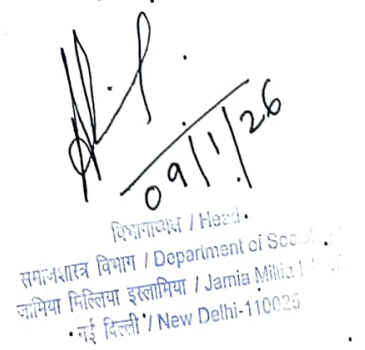 09/1/26
विभागाध्यक्ष / Head
समाजशास्त्र विभाग / Department of
जामिया मिल्लिया इस्लामिया / Jamia Millia
नई दिल्ली / New Delhi-110025